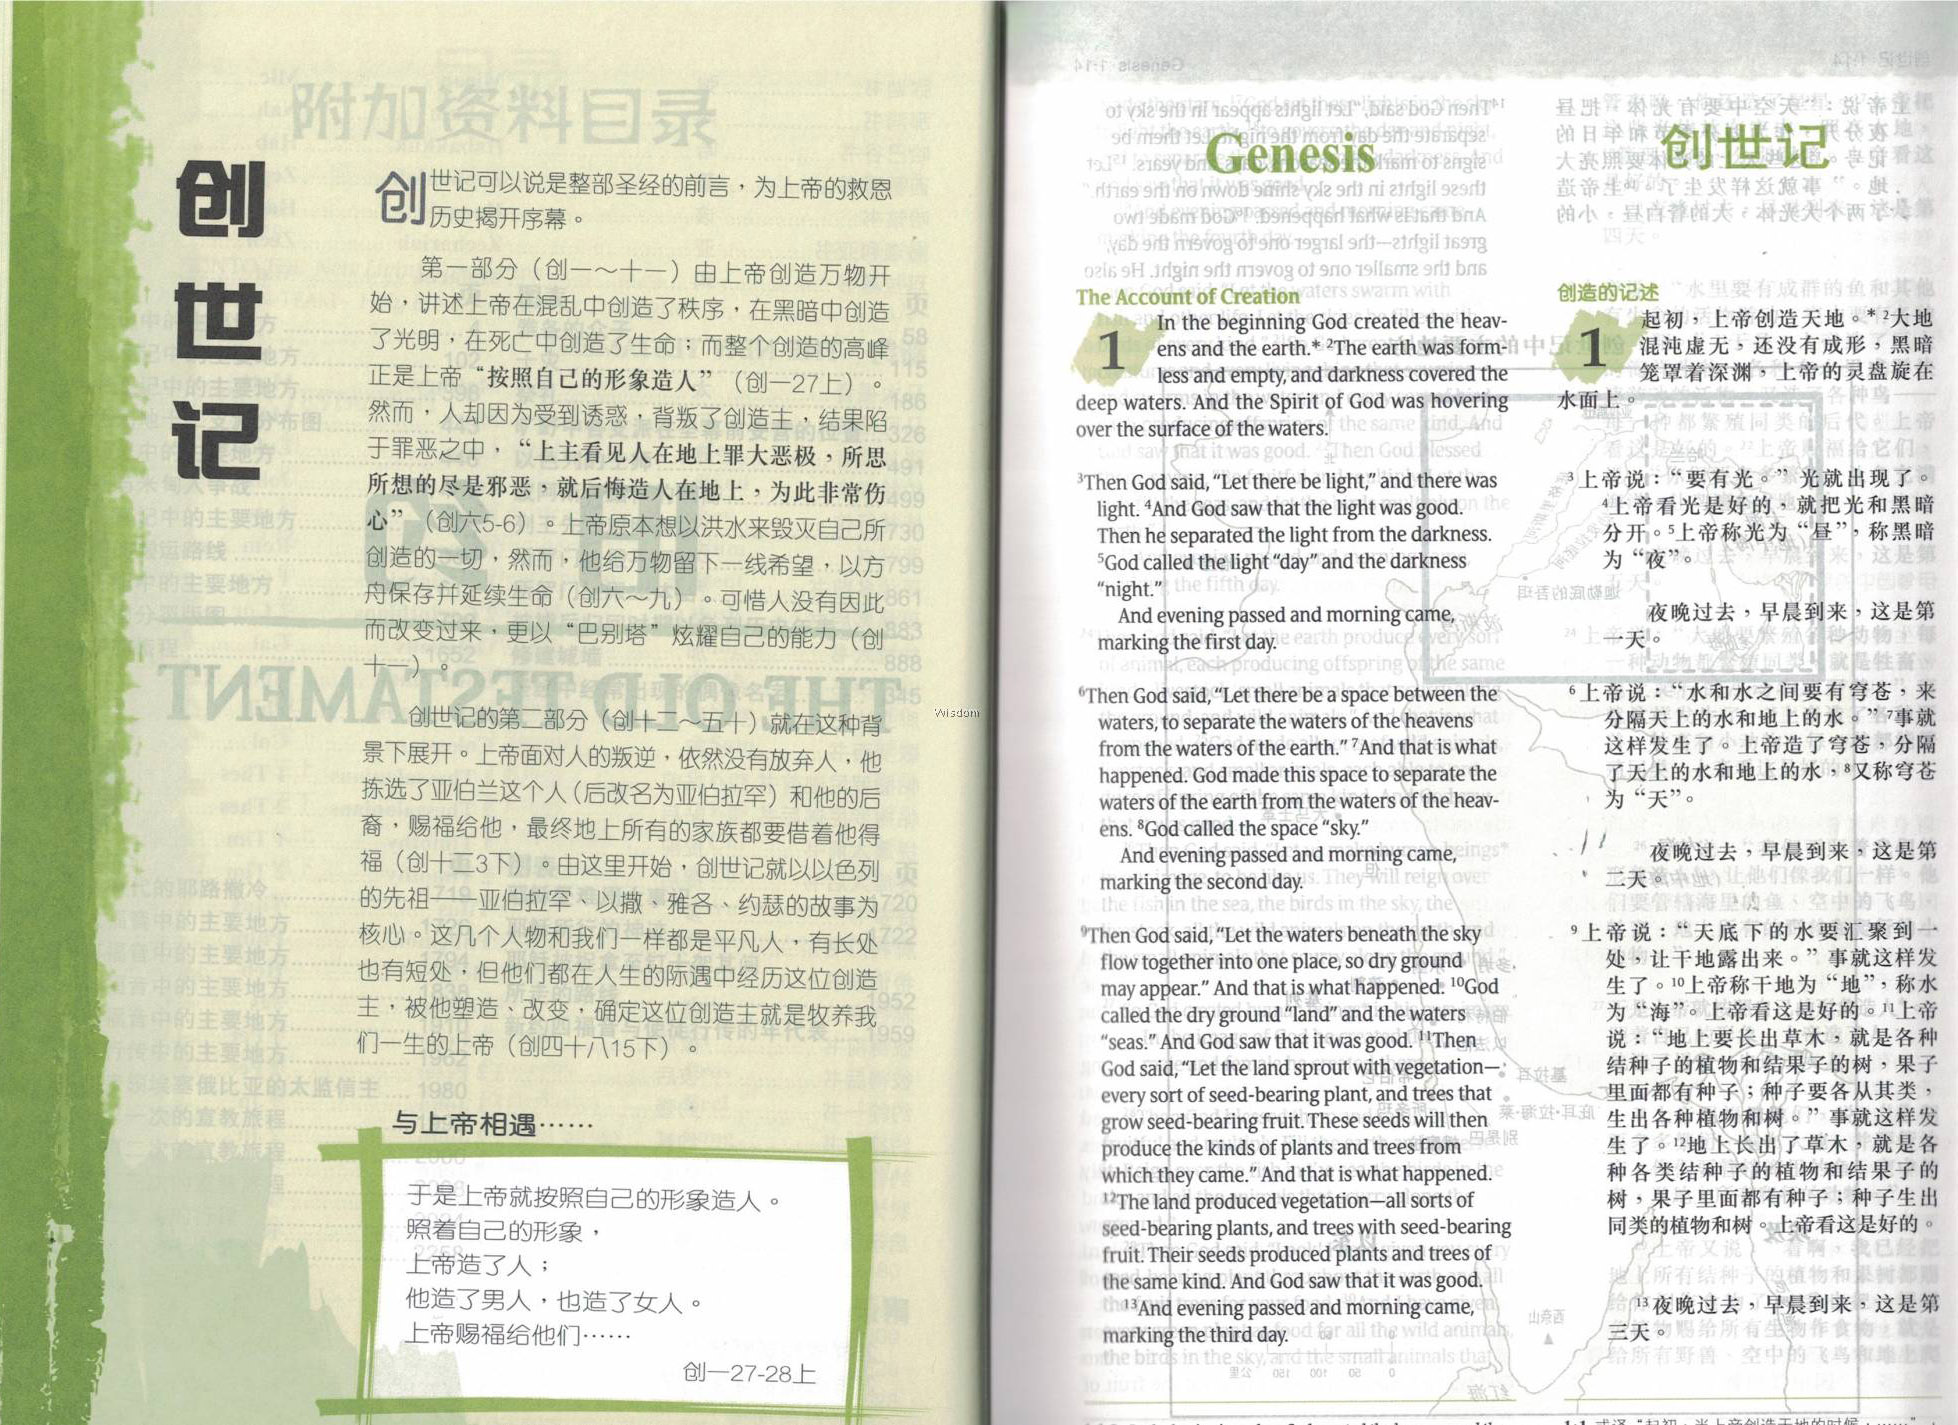 创
世
记
创世记可以说是整部圣经的前言，为上帝的救恩
历史揭开序幕。
第一部分（创一～十一）由上帝创造万物开
始，讲述上帝在混乱中创造了秩序，在黑暗中创造
了光明，在死亡中创造了生命；而整个创造的高峰
正是上帝“按照自己的形象造人”（创一27上）。
然而，人却因为受到诱惑，背叛了创造主，结果陷
于罪恶之中，“上主看见人在地上罪大恶极，所思
所想的尽是邪恶，就后悔造人在地上，为此非常伤
心”（创六5-6）。上帝原本想以洪水来毁灭自己所
创造的一切，然而，他给万物留下一线希望，以方
舟保存并延续生命（创六～九）。可惜人没有因此
而改变过来，更以“巴别塔”炫耀自己的能力（创
十一）。
创世记的第二部分（创十二～五十）就在这种背
景下展开。上帝面对人的叛逆，依然没有放弃人，他
拣选了亚伯兰这个人（后改名为亚伯拉罕）和他的后
裔，赐福给他，最终地上所有的家族都要借着他得
福（创十二3下）。由这里开始，创世记就以以色列
的先祖——亚伯拉罕、以撒、雅各、约瑟的故事为
核心。这几个人物和我们一样都是平凡人，有长处
也有短处，但他们都在人生的际遇中经历这位创造
主，被他塑造、改变，确定这位创造主就是牧养我
们一生的上帝（创四十八15下）。
与上帝相遇……
于是上帝就按照自己的形象造人。
照着自己的形象，
上帝造了人；
他造了男人，也造了女人。
上帝赐福给他们……
创一27-28上
Wisdom
Genesis
The Account of Creation
1 In the beginning God created the heav-
ens and the earth.* ²The earth was form-
less and empty, and darkness covered the
deep waters. And the Spirit of God was hovering
over the surface of the waters.
³Then God said, “Let there be light,” and there was
light. ⁴And God saw that the light was good.
Then he separated the light from the darkness.
⁵God called the light “day” and the darkness
“night.”
And evening passed and morning came,
marking the first day.
⁶Then God said, “Let there be a space between the
waters, to separate the waters of the heavens
from the waters of the earth.” ⁷And that is what
happened. God made this space to separate the
waters of the earth from the waters of the heav-
ens. ⁸God called the space “sky.”
And evening passed and morning came,
marking the second day.
⁹Then God said, “Let the waters beneath the sky
flow together into one place, so dry ground
may appear.” And that is what happened. ¹⁰God
called the dry ground “land” and the waters
“seas.” And God saw that it was good. ¹¹Then
God said, “Let the land sprout with vegetation—
every sort of seed-bearing plant, and trees that
grow seed-bearing fruit. These seeds will then
produce the kinds of plants and trees from
which they came.” And that is what happened.
¹²The land produced vegetation—all sorts of
seed-bearing plants, and trees with seed-bearing
fruit. Their seeds produced plants and trees of
the same kind. And God saw that it was good.
¹³And evening passed and morning came,
marking the third day.
创世记
创造的记述
1 起初，上帝创造天地。* ²大地
混沌虚无，还没有成形，黑暗
笼罩着深渊，上帝的灵盘旋在
水面上。
³上帝说：“要有光。”光就出现了。
⁴上帝看光是好的，就把光和黑暗
分开。⁵上帝称光为“昼”，称黑暗
为“夜”。
夜晚过去，早晨到来，这是第
一天。
⁶上帝说：“水和水之间要有穹苍，来
分隔天上的水和地上的水。”⁷事就
这样发生了。上帝造了穹苍，分隔
了天上的水和地上的水，⁸又称穹苍
为“天”。
夜晚过去，早晨到来，这是第
二天。
⁹上帝说：“天底下的水要汇聚到一
处，让干地露出来。”事就这样发
生了。¹⁰上帝称干地为“地”，称水
为“海”。上帝看这是好的。¹¹上帝
说：“地上要长出草木，就是各种
结种子的植物和结果子的树，果子
里面都有种子；种子要各从其类，
生出各种植物和树。”事就这样发
生了。¹²地上长出了草木，就是各
种各类结种子的植物和结果子的
树，果子里面都有种子；种子生出
同类的植物和树。上帝看这是好的。
¹³夜晚过去，早晨到来，这是第
三天。